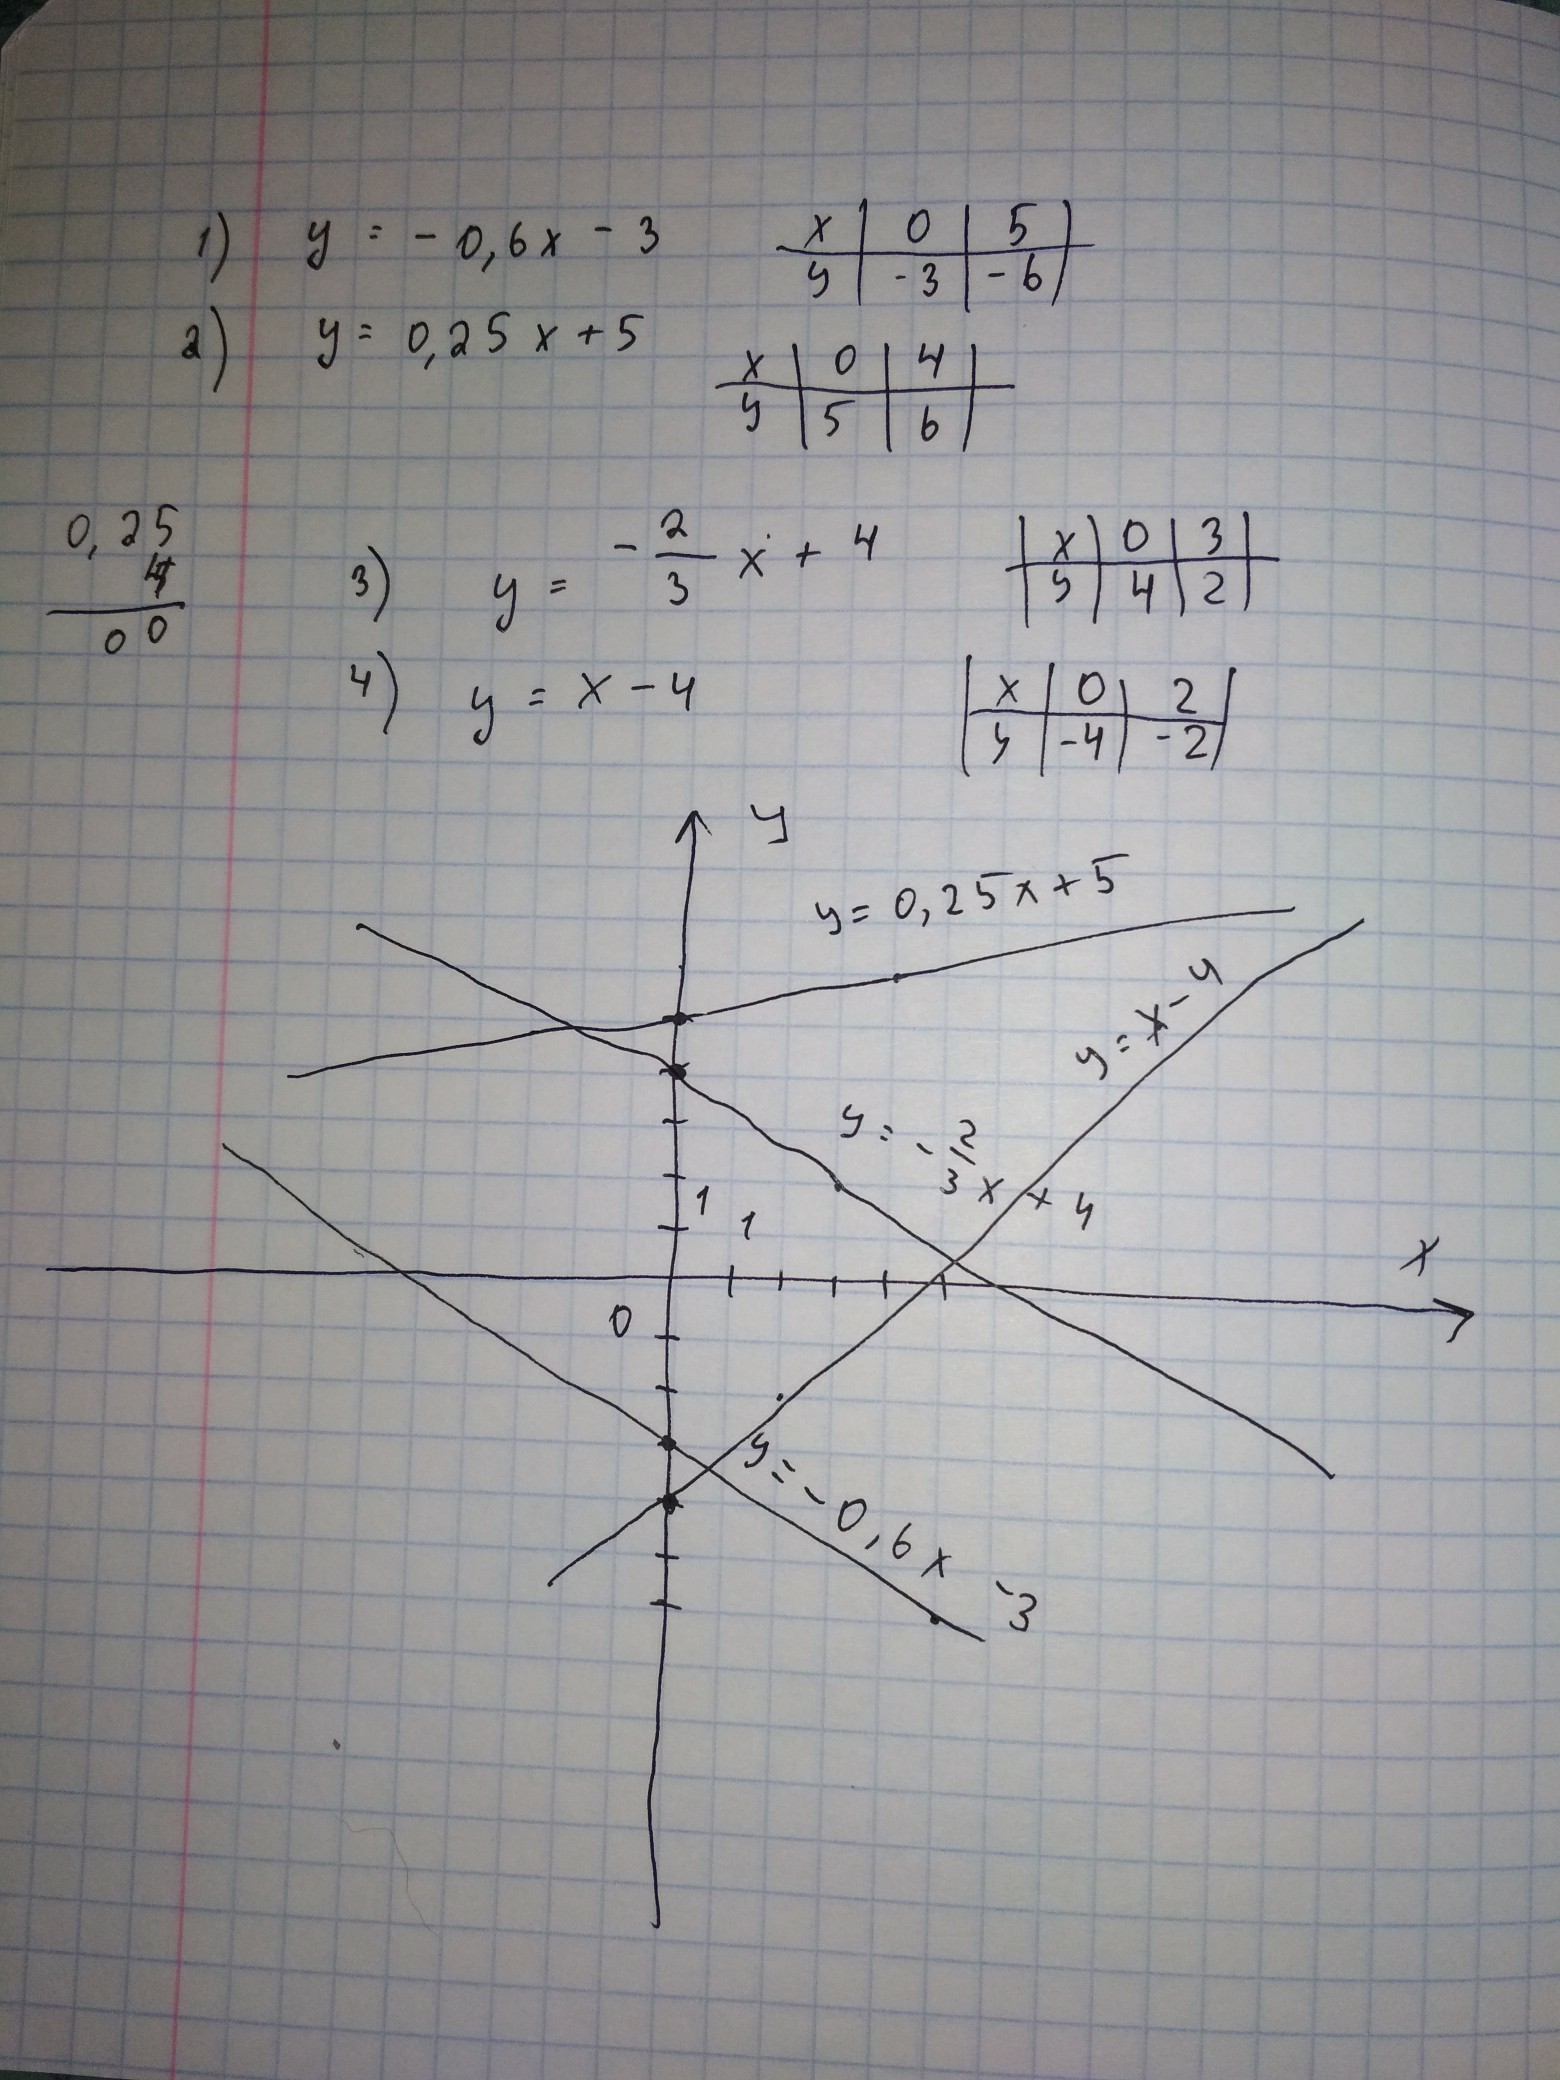 1) y = - 0,6x - 3
x 0 5
y -3 -6
2) y = 0,25 x + 5
x 0 4
y 5 6
0,25
4
00
3) y = -2/3 x + 4
x 0 3
y 4 2
4) y = x - 4
x 0 2
y -4 -2
y
y = 0,25x + 5
y = x - 4
y = - 2/3 x + 4
1 1
x
0
y = - 0,6 x - 3